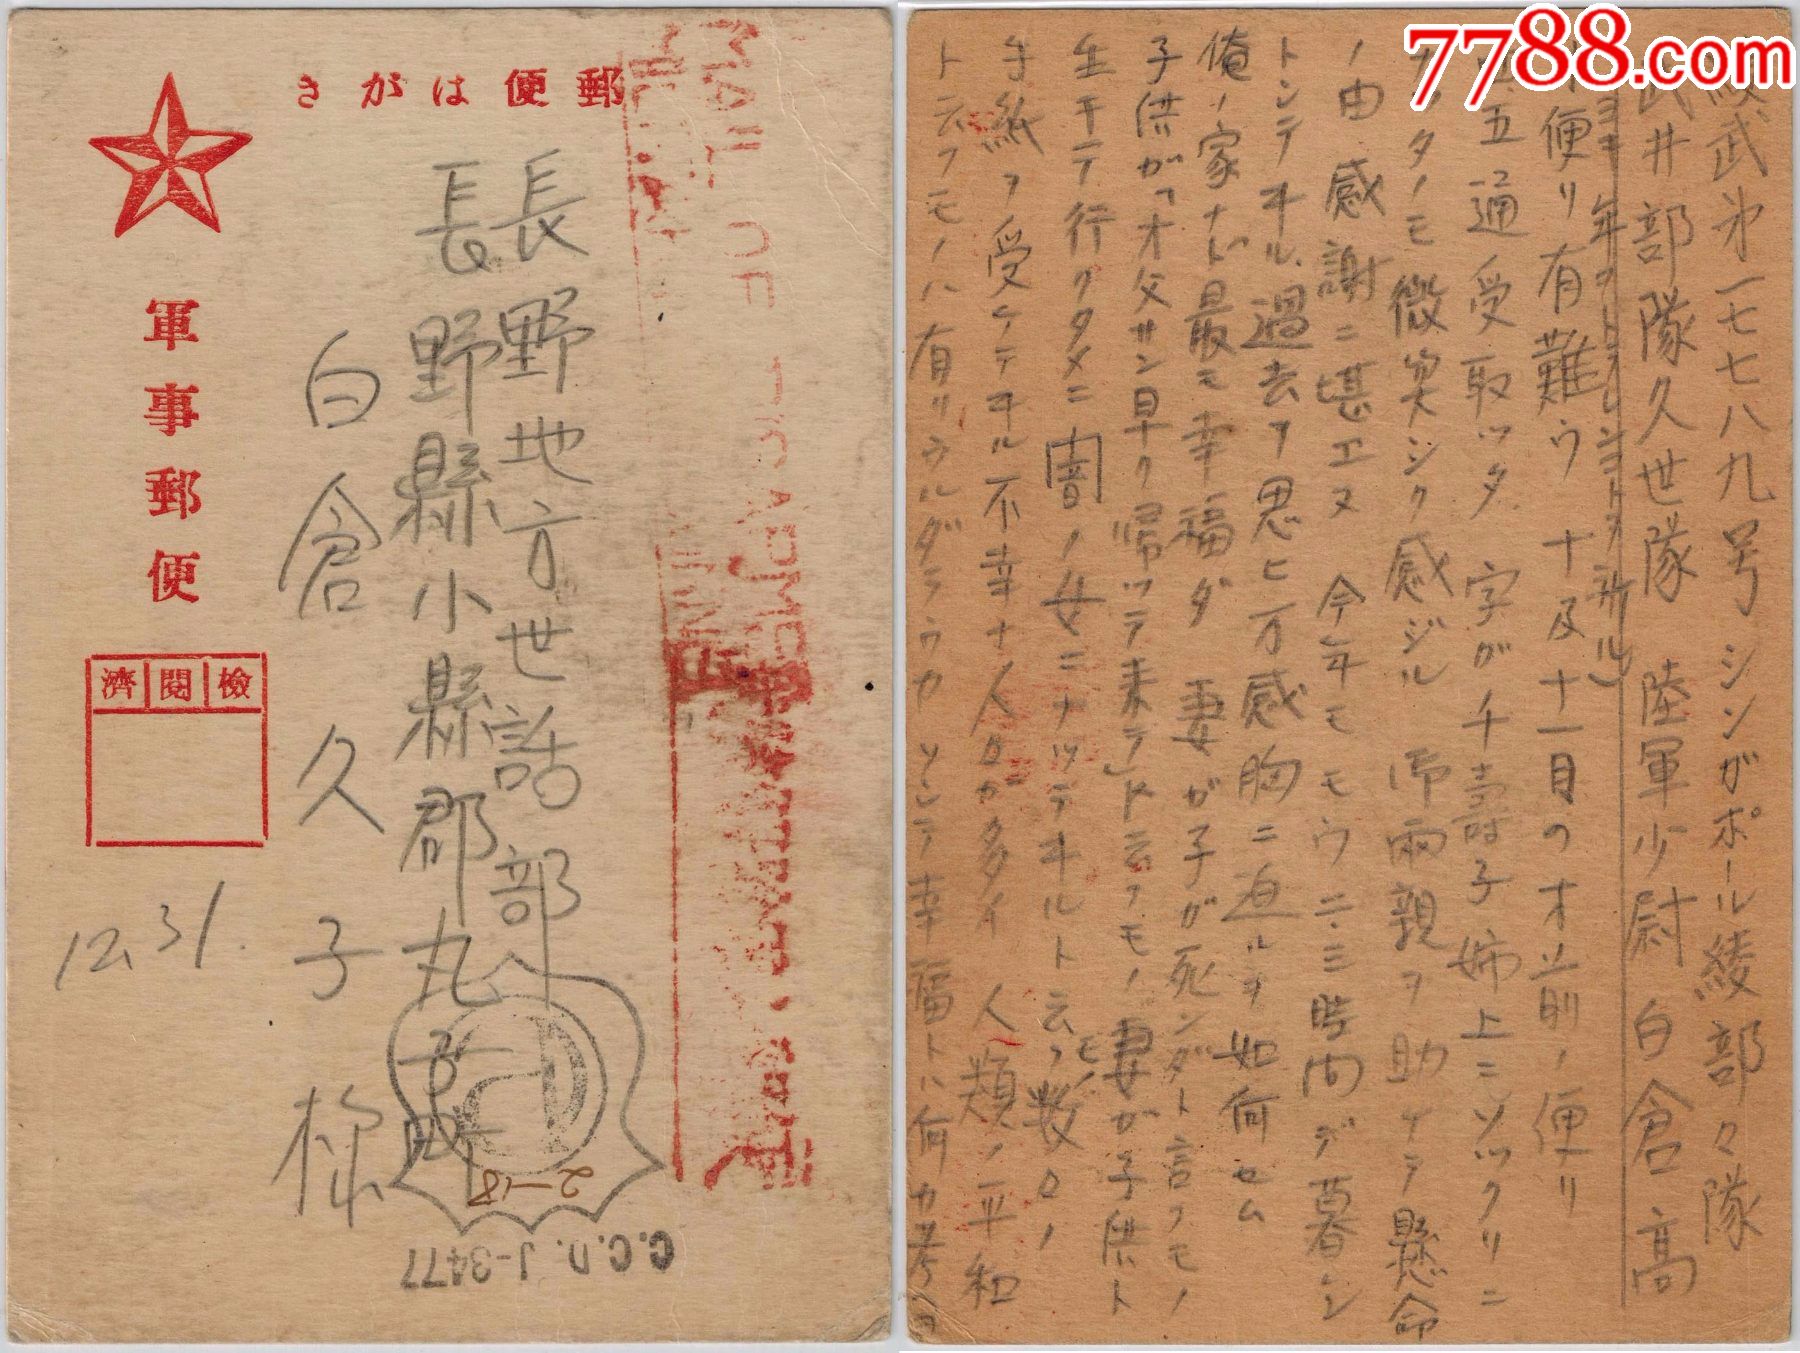 郵便はがき
軍事郵便
檢閱濟
長野地方世話部
長野縣小縣郡丸子町
白倉久子様
12,31.
MAIL OF
2-18
C.C.D. J-3477
7788.com
武井部隊久世隊 陸軍少尉 白倉高
便リ有難ウ 十及十一月のオ前ノ便リ
五通受取ツタ 字ガ千壽子姉上ニソックリニ
ナッタノモ微笑シク感ジル 御両親ヲ助ケテ懸命
ノ由 感謝ニ堪エヌ 今年モモウ二、三時間デ暮レ
トシテヰル、過去ヲ思ヒ万感胸ニ迫ルヲ如何セム
俺ノ家ナド最モ幸福ダ 妻ガ子ガ死ンダト言フモノ
子供ガ「オ父サン早ク帰ツテ来テ」ト云フモノ、妻ガ子供ト
生キテ行クタメニ闇ノ女ニナッテヰルト云フモノ 数多ノ
手紙ヲ受ケテヰル不幸ナ人ガ多イ 人類ノ平和
ト云フモノハ有リウルダラウカ ソシテ幸福トハ何カ考ヲ